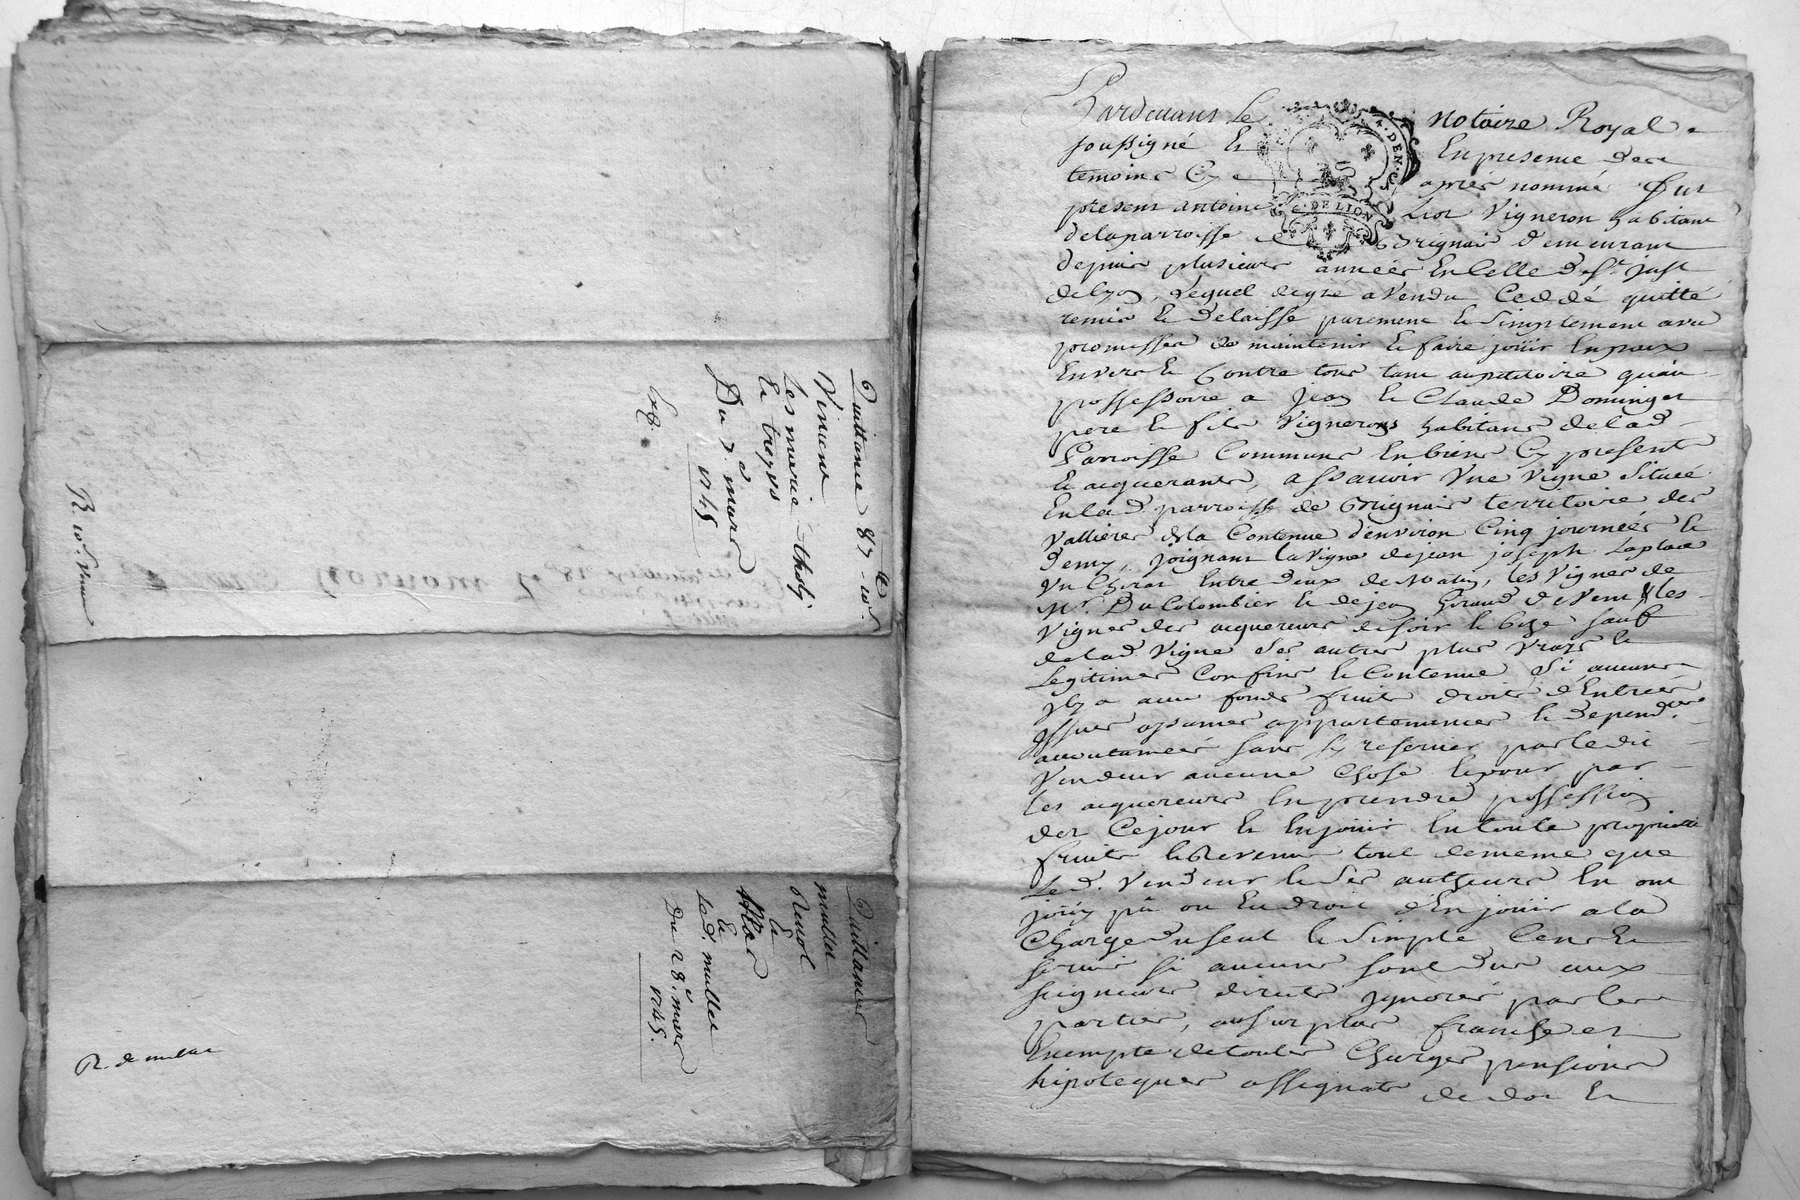 Quittance 87 ₶ 10 s.
Vincent
Les marie tholy
Et treyys
Du 7.e mars
1745
Exp.
R 10 s. Vincent
Quittances
mullet
Renol
Et
Allar
Et
Led. mullet
Du 28.e mars
1745.
R. de mullet
Pardevant Le notaire Royal
soussigné Et En presence des
temoins Cy aprés nommé fut
present antoine Liot Vigneron habitant
de la parroisse de Grignai demeurant
depuis plusieurs années En Celle de St. just
de Lyon, Lequel de gré a Vendu Ceddé quitté
remis Et Delaissé purement Et Simplement avec
promesse de maintenir Et faire joüir En paix
Envers Et Contre tous tant au petitoire qu'au
possessoire a Jean Et Claude Dominget
pere Et fils Vignerons habitans de lad.
Parroisse Communs En biens Cy present
Et acquerants, assavoir Une Vigne Située
En lad. parroisse de Grignai territoire des
Vallieres de la Contenue d'environ Cinq journées Et
demy, joignant la Vigne de jean joseph Laplace
Un Chirat Entre deux de matin, les Vignes de
Mr. Du Colombier Et de jean Giraud de Vent, les
Vignes des acquereurs de soir Et bize sauf
de lad. Vigne Ses autres plus Vrays Et
Legitimes Confins Et Contenue, Si aucuns
y En a avec fonds fruits droits d'Entrées
Issues aysances appartenances Et dependces
accoutumées sans sy reserver par ledit
Vendeur aucune Chose Et pour par
les acquereurs En prendre possession
dez Ce jour Et En joüir En toute proprieté
fruits Et Revenus tout de meme que
Led. Vendeur Et Ses autheurs En ont
joüy pû ou Eu droit d'En joüir a la
Charge du seul Et Simple Cens Et
servis si aucuns sont dus aux
seigneurs directs Ignorés par les
parties, au surplus franche et
Exempte de toutes Charges pensions
hipoteques assignats de dot Et